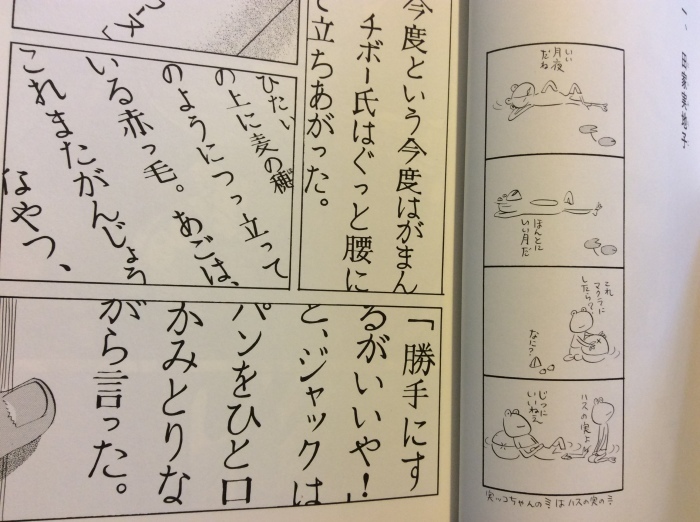 今度という今度はがまん
チボー氏はぐっと腰に
て立ちあがった。
ひたい
の上に麦の穂
のようにつっ立って
いる赤っ毛。あごは、
これまたがんじょう
なやつ、
「勝手にす
るがいいや!
と、ジャックは
パンをひと口
かみとりな
がら言った。
いい
月夜
だね
ほんとに
いい月だ
これ
マクラに
したら?
なに?
ハスの実よ
じつに
いいねえ